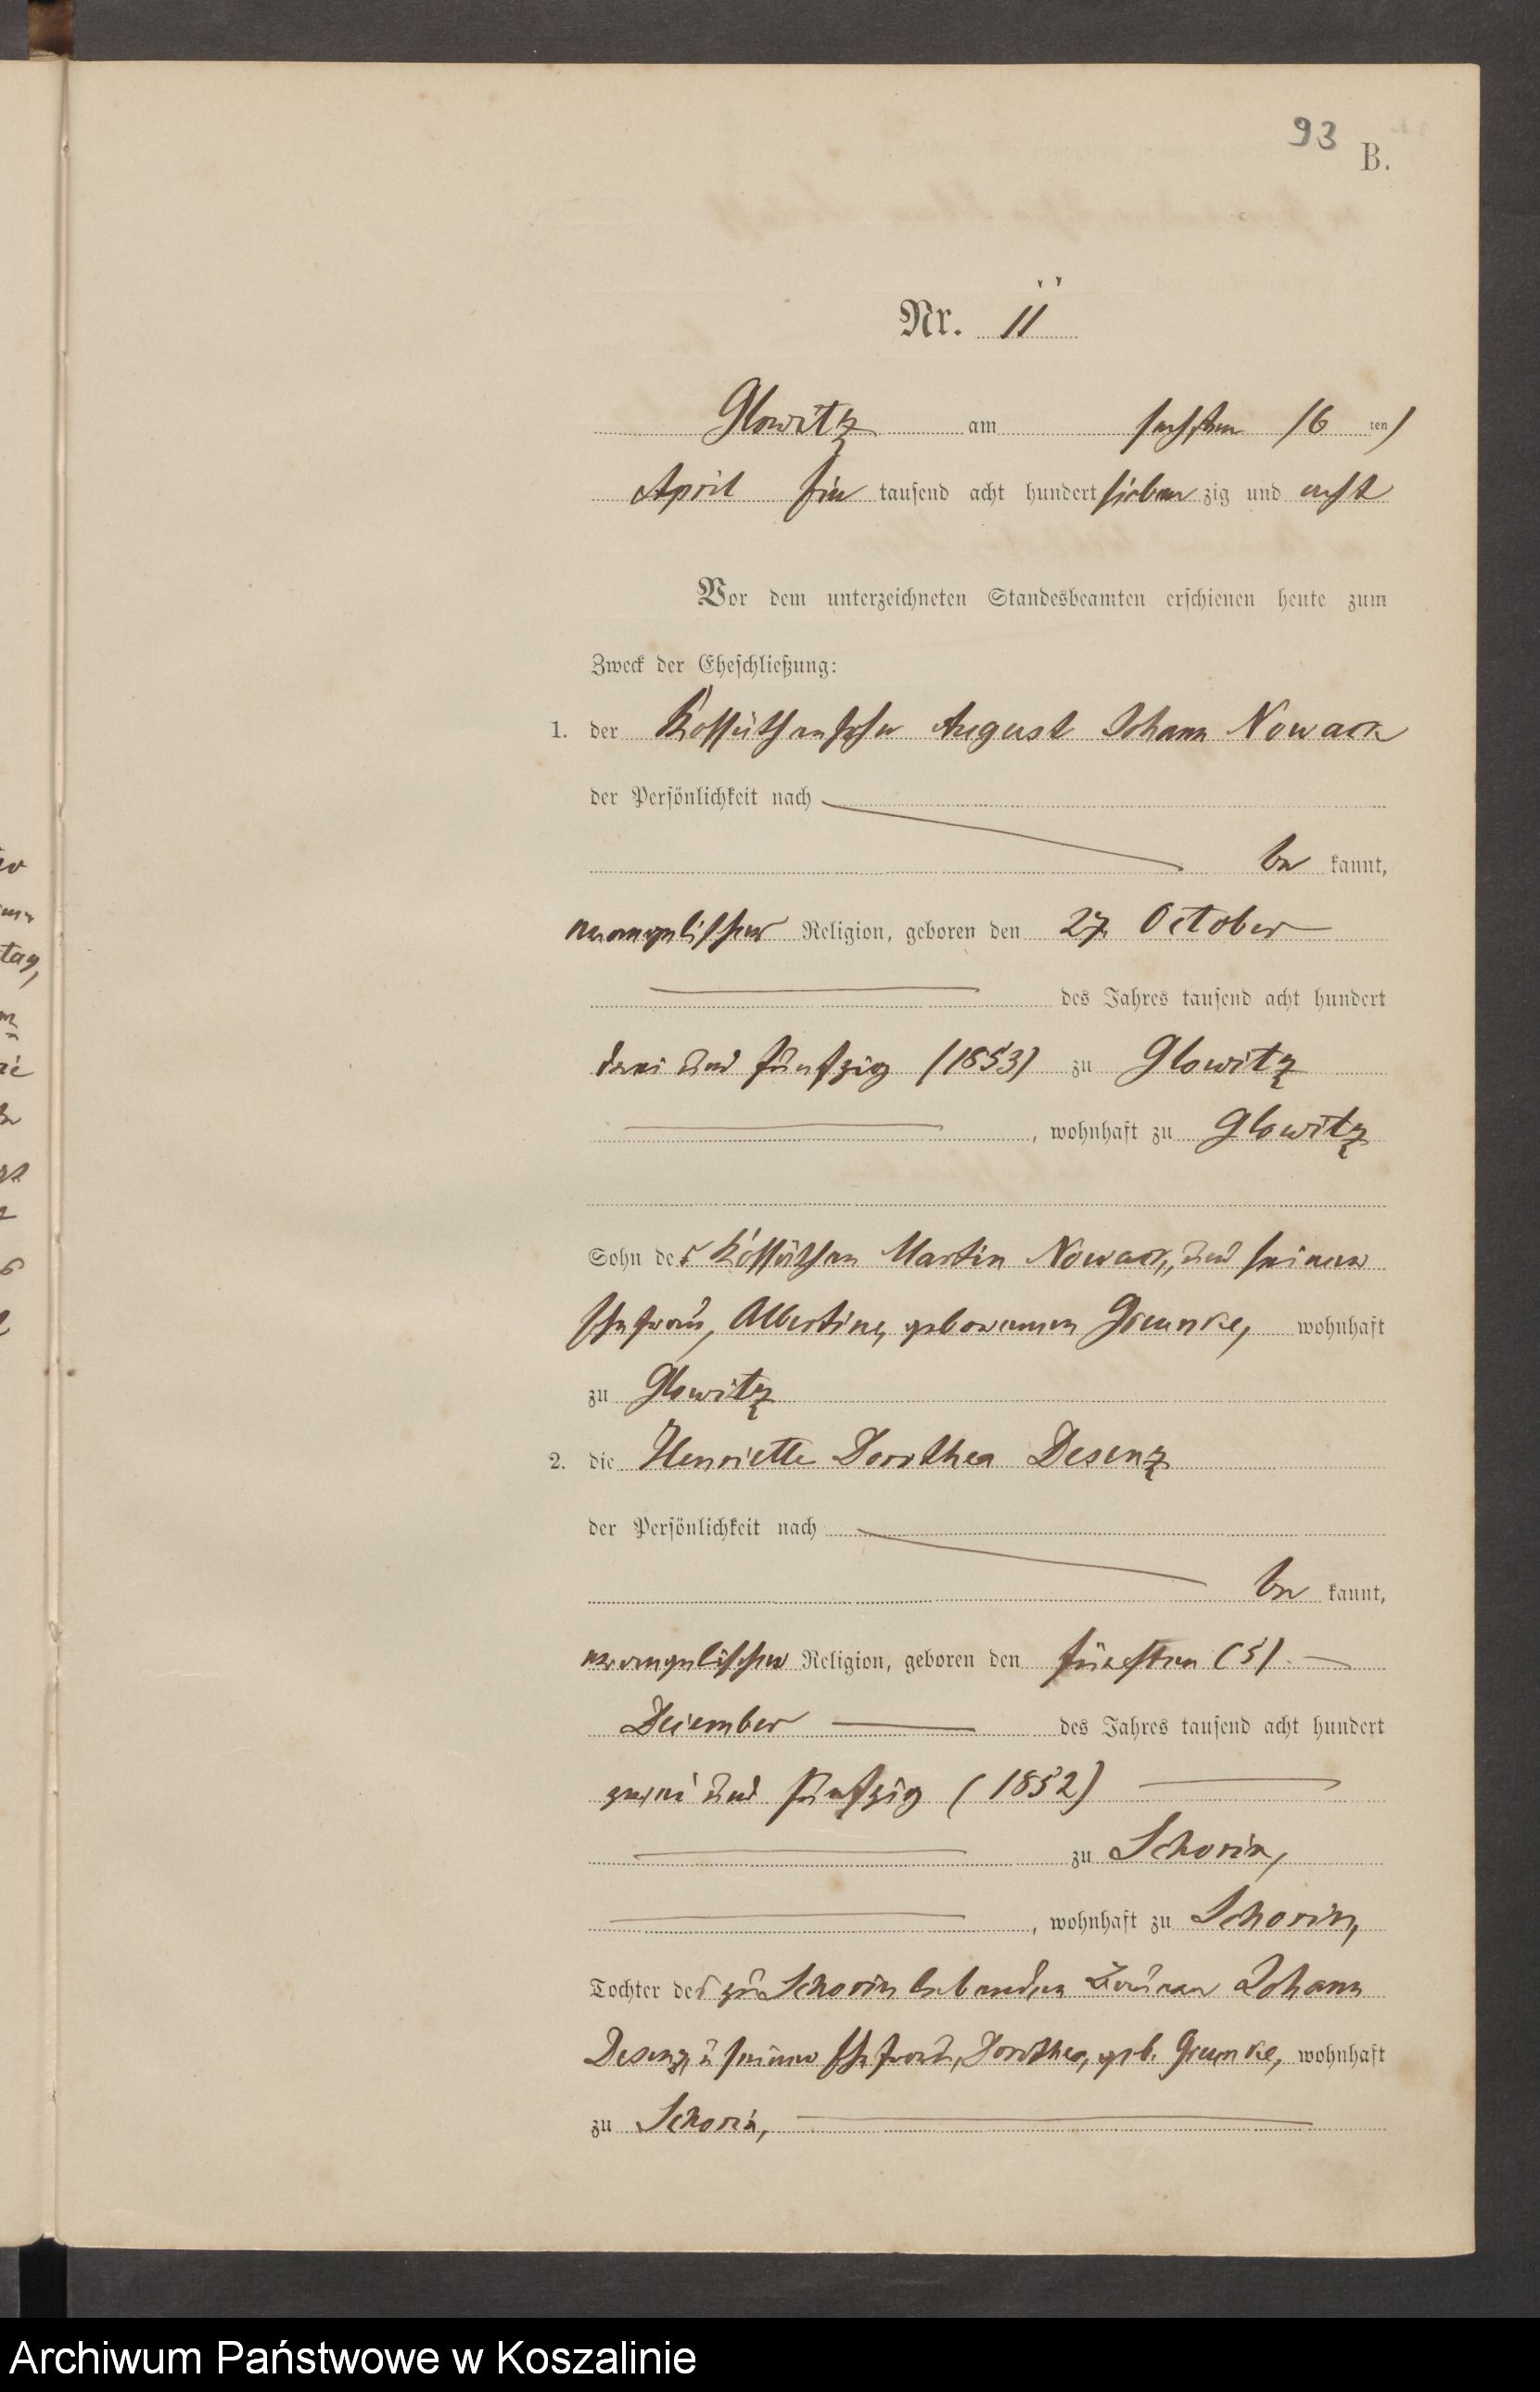 93
B.
Nr. 11
Glowitz am sechsten (6 ten)
April ein tausend acht hundert sieben zig und acht
Vor dem unterzeichneten Standesbeamten erschienen heute zum
Zweck der Eheschließung:
1. der Kossäthensohn August Johann Nowack
der Persönlichkeit nach
be kannt,
evangelischer Religion, geboren den 27. October
des Jahres tausend acht hundert
drei und fünfzig (1853) zu Glowitz
, wohnhaft zu Glowitz
Sohn des Kossäthen Martin Nowack, und seiner
Ehefrau, Albertine, geborenen Grunke, wohnhaft
zu Glowitz
2. die Henriette Dorothea Desenz
der Persönlichkeit nach
be kannt,
evangelischer Religion, geboren den fünften (5)
Dezember des Jahres tausend acht hundert
zwei und fünfzig (1852)
zu Schorin,
, wohnhaft zu Schorin,
Tochter des zu Schorin lebenden Johann
Desenz, u seiner Ehefrau, Dorothea, geb. Grunke, wohnhaft
zu Schorin,
Archiwum Państwowe w Koszalinie